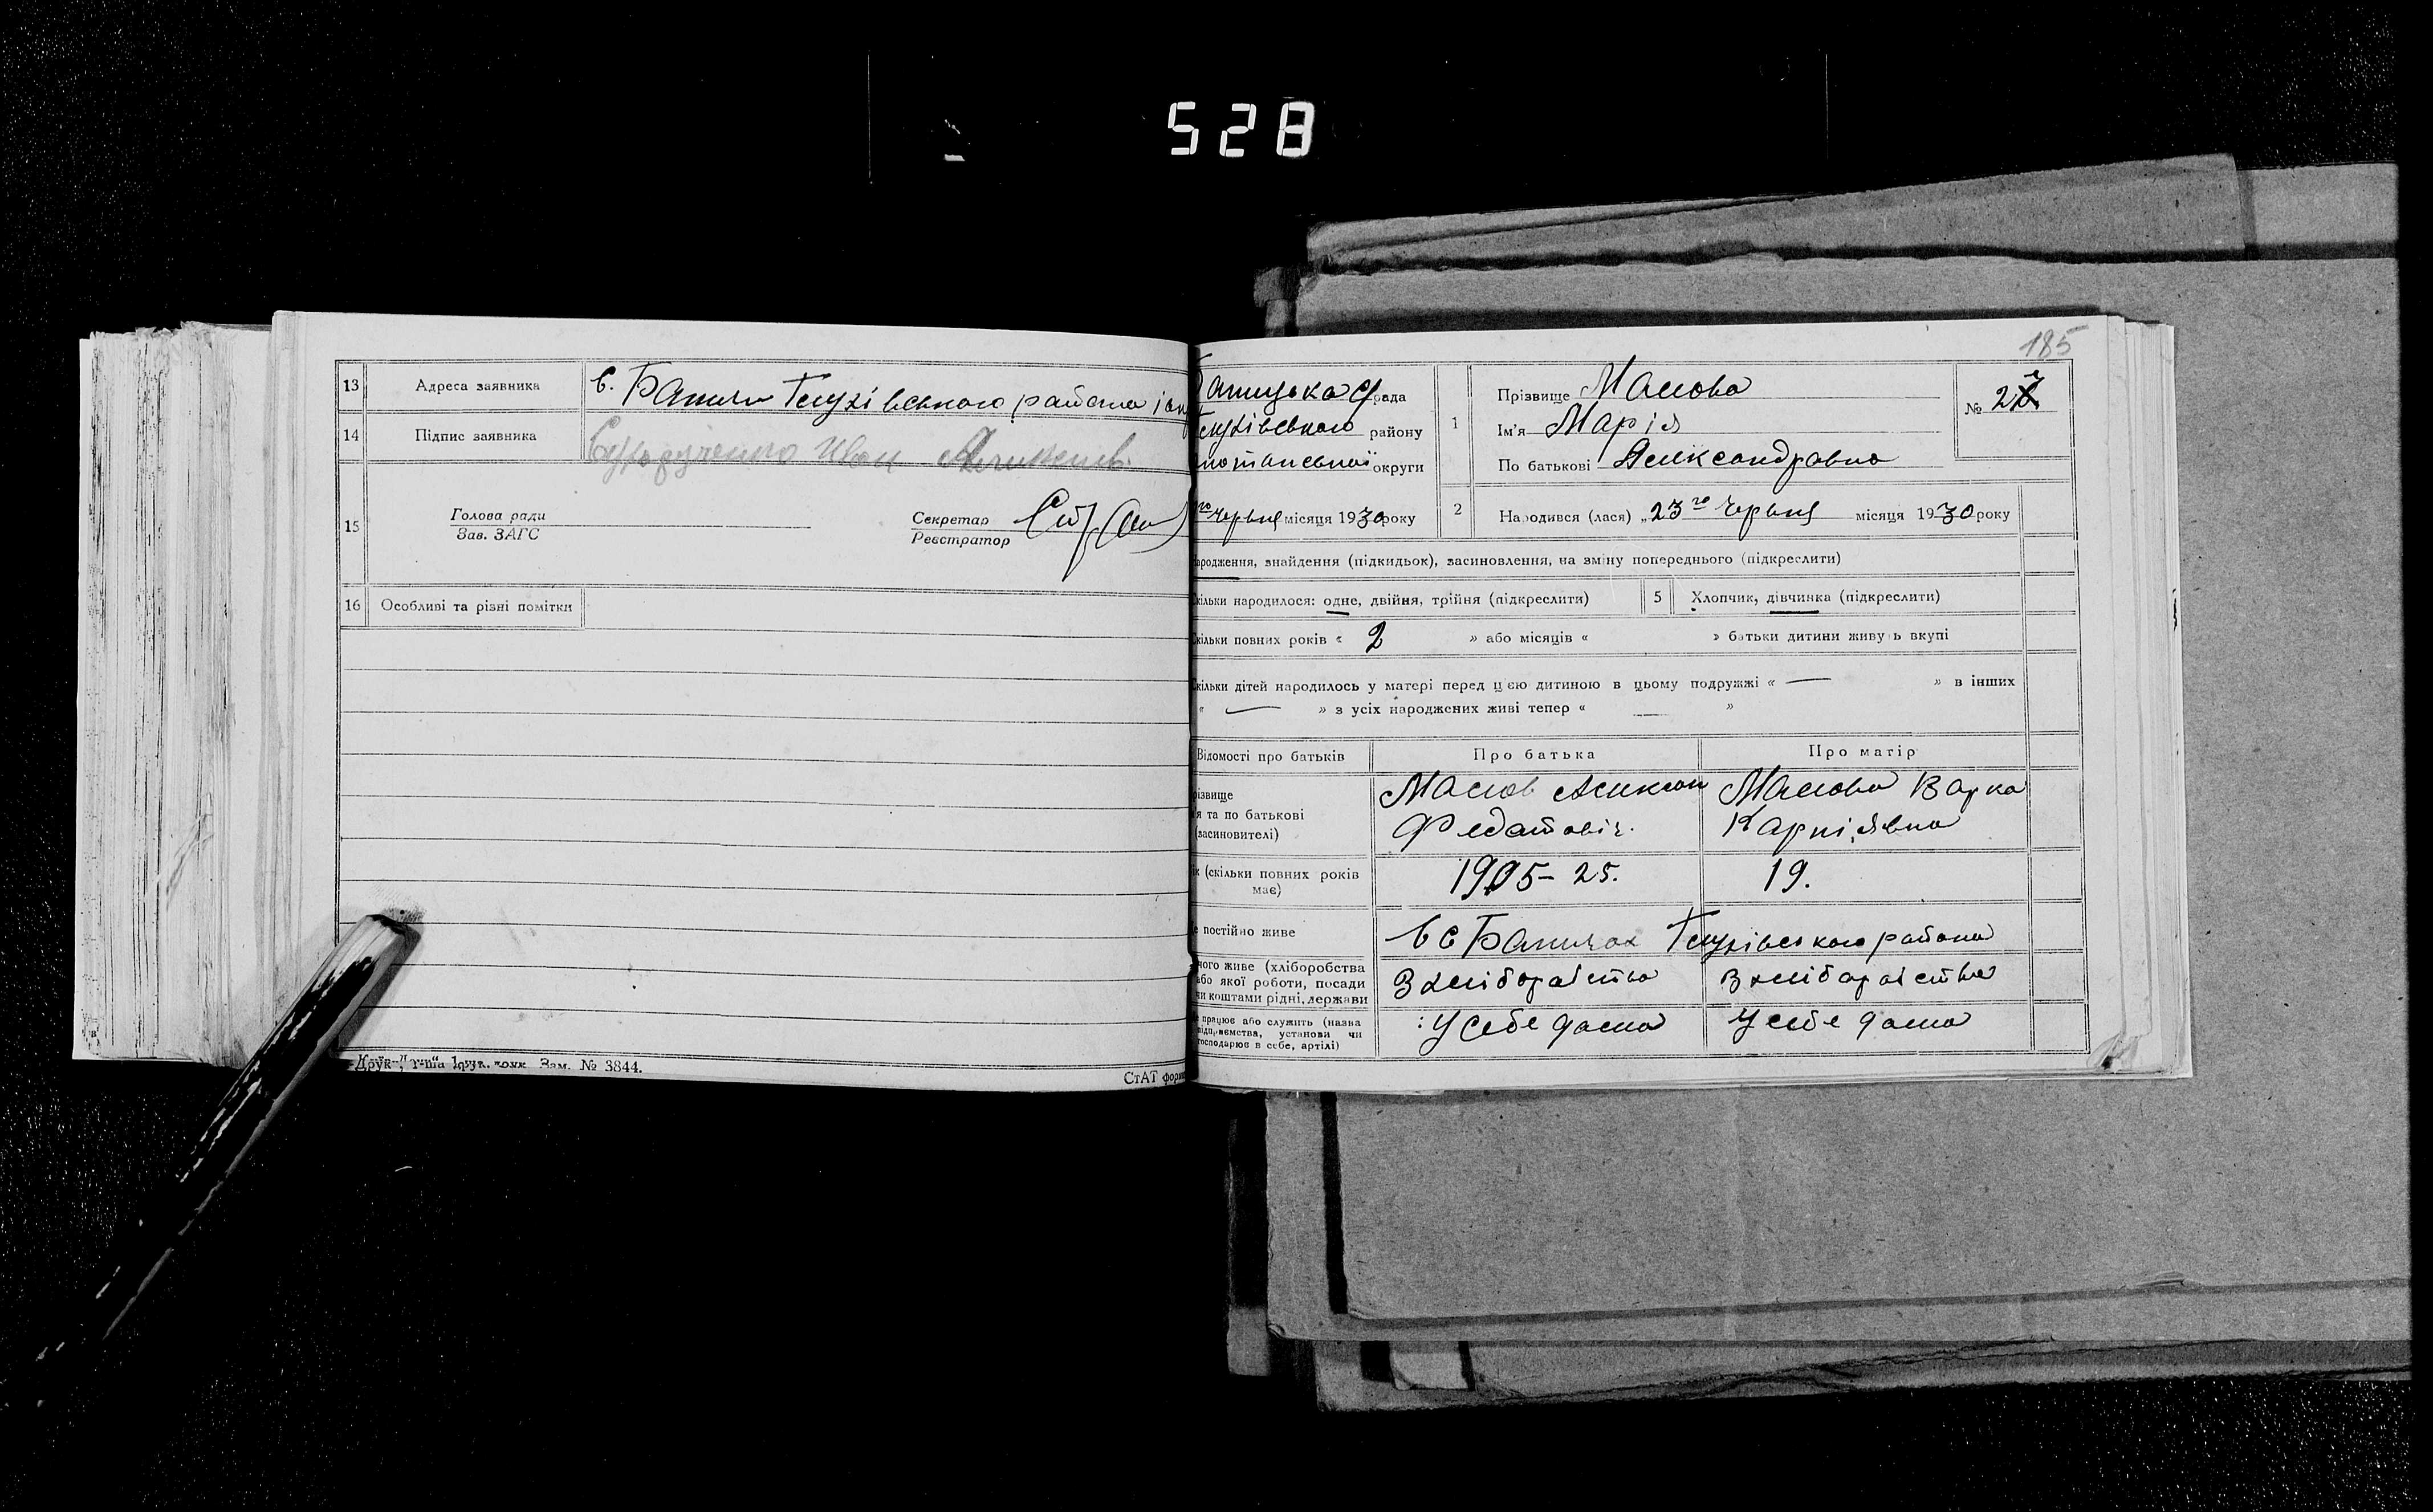 528
185
13 Адреса заявника с. Бапили Глухівського района і окр
14 Підпис заявника Иван
15 Голова ради
Зав. ЗАГС
Секретар
Реєстратор
16 Особливі та різні помітки
Зам. № 3844.
СтАТ форм
рада
Глухівського району
округи
червня місяця 1930 року
1 Прізвище Малова
Ім'я Марія
По батькові Александровна
№ 27
2 Народився (лася) „23го червня місяця 1930 року
народження, знайдення (підкидьок), засиновлення, на зміну попереднього (підкреслити)
кільки народилося: одне, двійня, трійня (підкреслити)
5 Хлопчик, дівчинка (підкреслити)
кільки повних років « 2 » або місяців « » батьки дитини живуть вкупі
кільки дітей народилось у матері перед цією дитиною в цьому подружжі « — » в інших
« — » з усіх народжених живі тепер « — »
Відомості про батьків Про батька Про матір
різвище
'я та по батькові
(засиновителі)
Малов Алексан
Федатовіч.
Малова Варка
Карпіявна
ік (скільки повних років
має)
1905 – 25.
19.
е постійно живе
в с Бапилах Глухівського района
чого живе (хліборобства
або якої роботи, посади
чи коштами рідні, держави
З хліборабства
З хліборабства
е працює або служить (назва
підприємства, установи чи
господарює в себе, артілі)
У себе дома
У себе дома